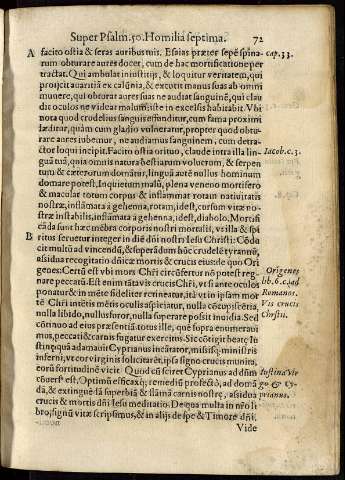 Super Psalm.50. Homilia septima. 72
A facito ostia & seras auribus tuis. Esaias præter sepẽ spina- cap.33.
rum obturare aures docet, cum de hac mortificatione per
tractat. Qui ambulat in iustitijs, & loquitur veritatem, qui
proijcit auaritiã ex calũnia, & excutit manus suas ab omni
munere, qui obturat aures suas ne audiat sanguinẽ, qui clau
dit oculos ne videat malum: iste in excelsis habitabit. Vbi
nota quod crudelius sanguis effunditur, cum fama proximi
læditur, quàm cum gladio vulneratur, propter quod obtu-
rare aures iubemur, ne audiamus sanguinem, cum detra-
ctor loqui incipit. Facito ostia ori tuo, claude intra illa lin- Iacob.c.3.
guã tuã, quia omnis natura bestiarum volucrum, & serpen
tum & cæterorum domãtur, linguã autẽ nullus hominum
domare potest, Inquietum malũ, plena veneno mortifero
& macular totum corpus & inflammat rotam natiuitatis
nostræ, inflãmata à gehenna, rotam, idest, cursum vitæ no-
stræ instabilis, inflãmata à gehenna, idest, diabolo, Mortifi
cãda sunt hæc mẽbra corporis nostri mortalis, vt illa & spi
B ritus seruetur integer in die dñi nostri Iesu Christi: Cõda
cit multũ ad vincendũ, & superãdum hũc crudelẽ tyrannũ,
assidua recogitatio dñicæ mortis & crucis eius de quo Ori
genes: Certũ est vbi mors Chr̃i circũfertur nõ potest reg- Origenes
nare peccatũ. Est enim tãta vis crucis Chr̃i, vt si ante oculos lib.6.c.1.ad
ponatur & in mẽte fideliter retineatur, ita vt in ipsam mor Romanos.
tẽ Chr̃i intẽtis mẽtis oculis aspiciatur, nulla cõcupiscẽtia Vis crucis
nulla libido, nullus furor, nulla superare possit inuidia. Sed Christi.
cõtinuo ad eius præsentiã totus ille, quẽ supra enumeraui
mus, peccati & carnis fugatur exercitus. Sic cõtigit beatæ Iu
stinę quã adamauit Cyprianus incãtator, missisque ministris
inferni, vt cor virginis sollicitarẽt, ipsa signo crucis munita,
eorũ fortitudinẽ vicit. Quod cũ sciret Cyprianus ad dñm Iustina Vir
cõuersus est. Optimũ efficaxque remediũ profectò, ad domã go & Cy-
dã, & extinguẽdã superbiã & flãmã carnis nostræ, assidua prianus.
crucis & mortis dñi Iesu meditatio. De qua multa in nr̃o li
bro, signũ vitæ scripsimus, & in alijs de spe & Timore dñi.
Vide